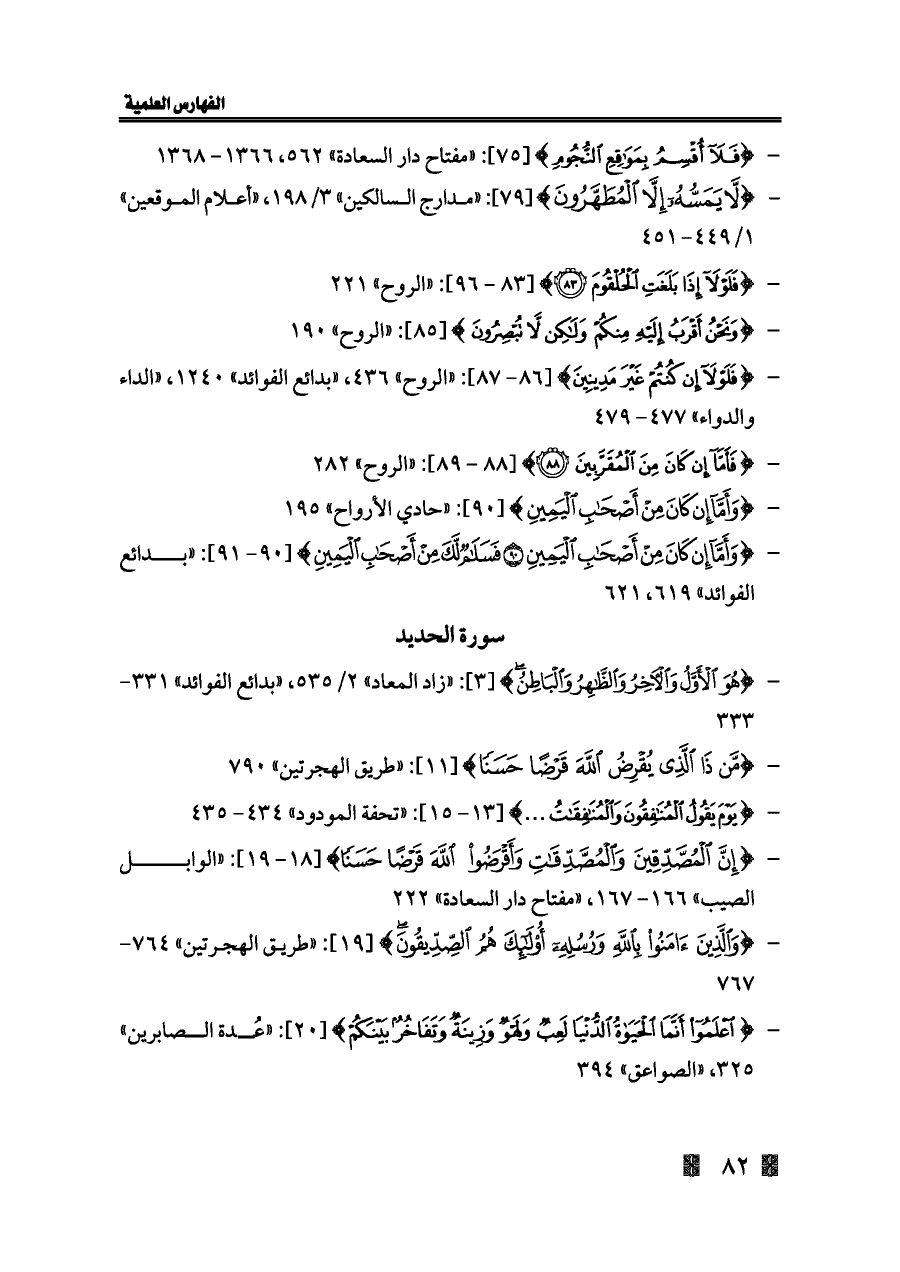 الفهارس العلمية
- ﴿فَلَآ أُقْسِمُ بِمَوَٰقِعِ ٱلنُّجُومِ﴾ [٧٥]: «مفتاح دار السعادة» ٥٦٢، ١٣٦٦ - ١٣٦٨
- ﴿لَّا يَمَسُّهُۥٓ إِلَّا ٱلْمُطَهَّرُونَ﴾ [٧٩]: «مدارج السالكين» ٣/ ١٩٨، «أعلام الموقعين»
١/ ٤٤٩ - ٤٥١
- ﴿فَلَوْلَآ إِذَا بَلَغَتِ ٱلْحُلْقُومَ ۝٨٣﴾ [٨٣ - ٩٦]: «الروح» ٢٢١
- ﴿وَنَحْنُ أَقْرَبُ إِلَيْهِ مِنكُمْ وَلَٰكِن لَّا تُبْصِرُونَ﴾ [٨٥]: «الروح» ١٩٠
- ﴿فَلَوْلَآ إِن كُنتُمْ غَيْرَ مَدِينِينَ﴾ [٨٦ - ٨٧]: «الروح» ٤٣٦، «بدائع الفوائد» ١٢٤٠، «الداء
والدواء» ٤٧٧ - ٤٧٩
- ﴿فَأَمَّآ إِن كَانَ مِنَ ٱلْمُقَرَّبِينَ ۝٨٨﴾ [٨٨ - ٨٩]: «الروح» ٢٨٢
- ﴿وَأَمَّآ إِن كَانَ مِنْ أَصْحَٰبِ ٱلْيَمِينِ﴾ [٩٠]: «حادي الأرواح» ١٩٥
- ﴿وَأَمَّآ إِن كَانَ مِنْ أَصْحَٰبِ ٱلْيَمِينِ ۝٩٠ فَسَلَٰمٌ لَّكَ مِنْ أَصْحَٰبِ ٱلْيَمِينِ﴾ [٩٠ - ٩١]: «بدائع
الفوائد» ٦١٩، ٦٢١
سورة الحديد
- ﴿هُوَ ٱلْأَوَّلُ وَٱلْأٓخِرُ وَٱلظَّٰهِرُ وَٱلْبَاطِنُۖ﴾ [٣]: «زاد المعاد» ٢/ ٥٣٥، «بدائع الفوائد» ٣٣١ -
٣٣٣
- ﴿مَّن ذَا ٱلَّذِى يُقْرِضُ ٱللَّهَ قَرْضًا حَسَنًا﴾ [١١]: «طريق الهجرتين» ٧٩٠
- ﴿يَوْمَ يَقُولُ ٱلْمُنَٰفِقُونَ وَٱلْمُنَٰفِقَٰتُ ...﴾ [١٣ - ١٥]: «تحفة المودود» ٤٣٤ - ٤٣٥
- ﴿إِنَّ ٱلْمُصَّدِّقِينَ وَٱلْمُصَّدِّقَٰتِ وَأَقْرَضُوا۟ ٱللَّهَ قَرْضًا حَسَنًا﴾ [١٨ - ١٩]: «الوابل
الصيب» ١٦٦ - ١٦٧، «مفتاح دار السعادة» ٢٢٢
- ﴿وَٱلَّذِينَ ءَامَنُوا۟ بِٱللَّهِ وَرُسُلِهِۦٓ أُو۟لَٰٓئِكَ هُمُ ٱلصِّدِّيقُونَۖ﴾ [١٩]: «طريق الهجرتين» ٧٦٤ -
٧٦٧
- ﴿ٱعْلَمُوٓا۟ أَنَّمَا ٱلْحَيَوٰةُ ٱلدُّنْيَا لَعِبٌ وَلَهْوٌ وَزِينَةٌ وَتَفَاخُرٌۢ بَيْنَكُمْ﴾ [٢٠]: «عُدة الصابرين»
٣٢٥، «الصواعق» ٣٩٤
٨٢